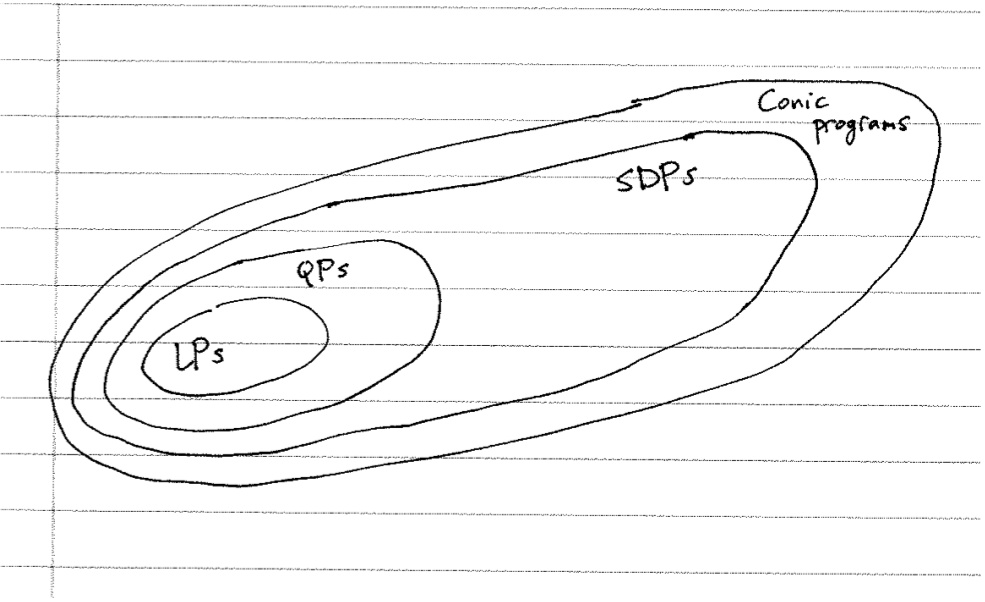 Conic
programs
SDPs
QPs
LPs